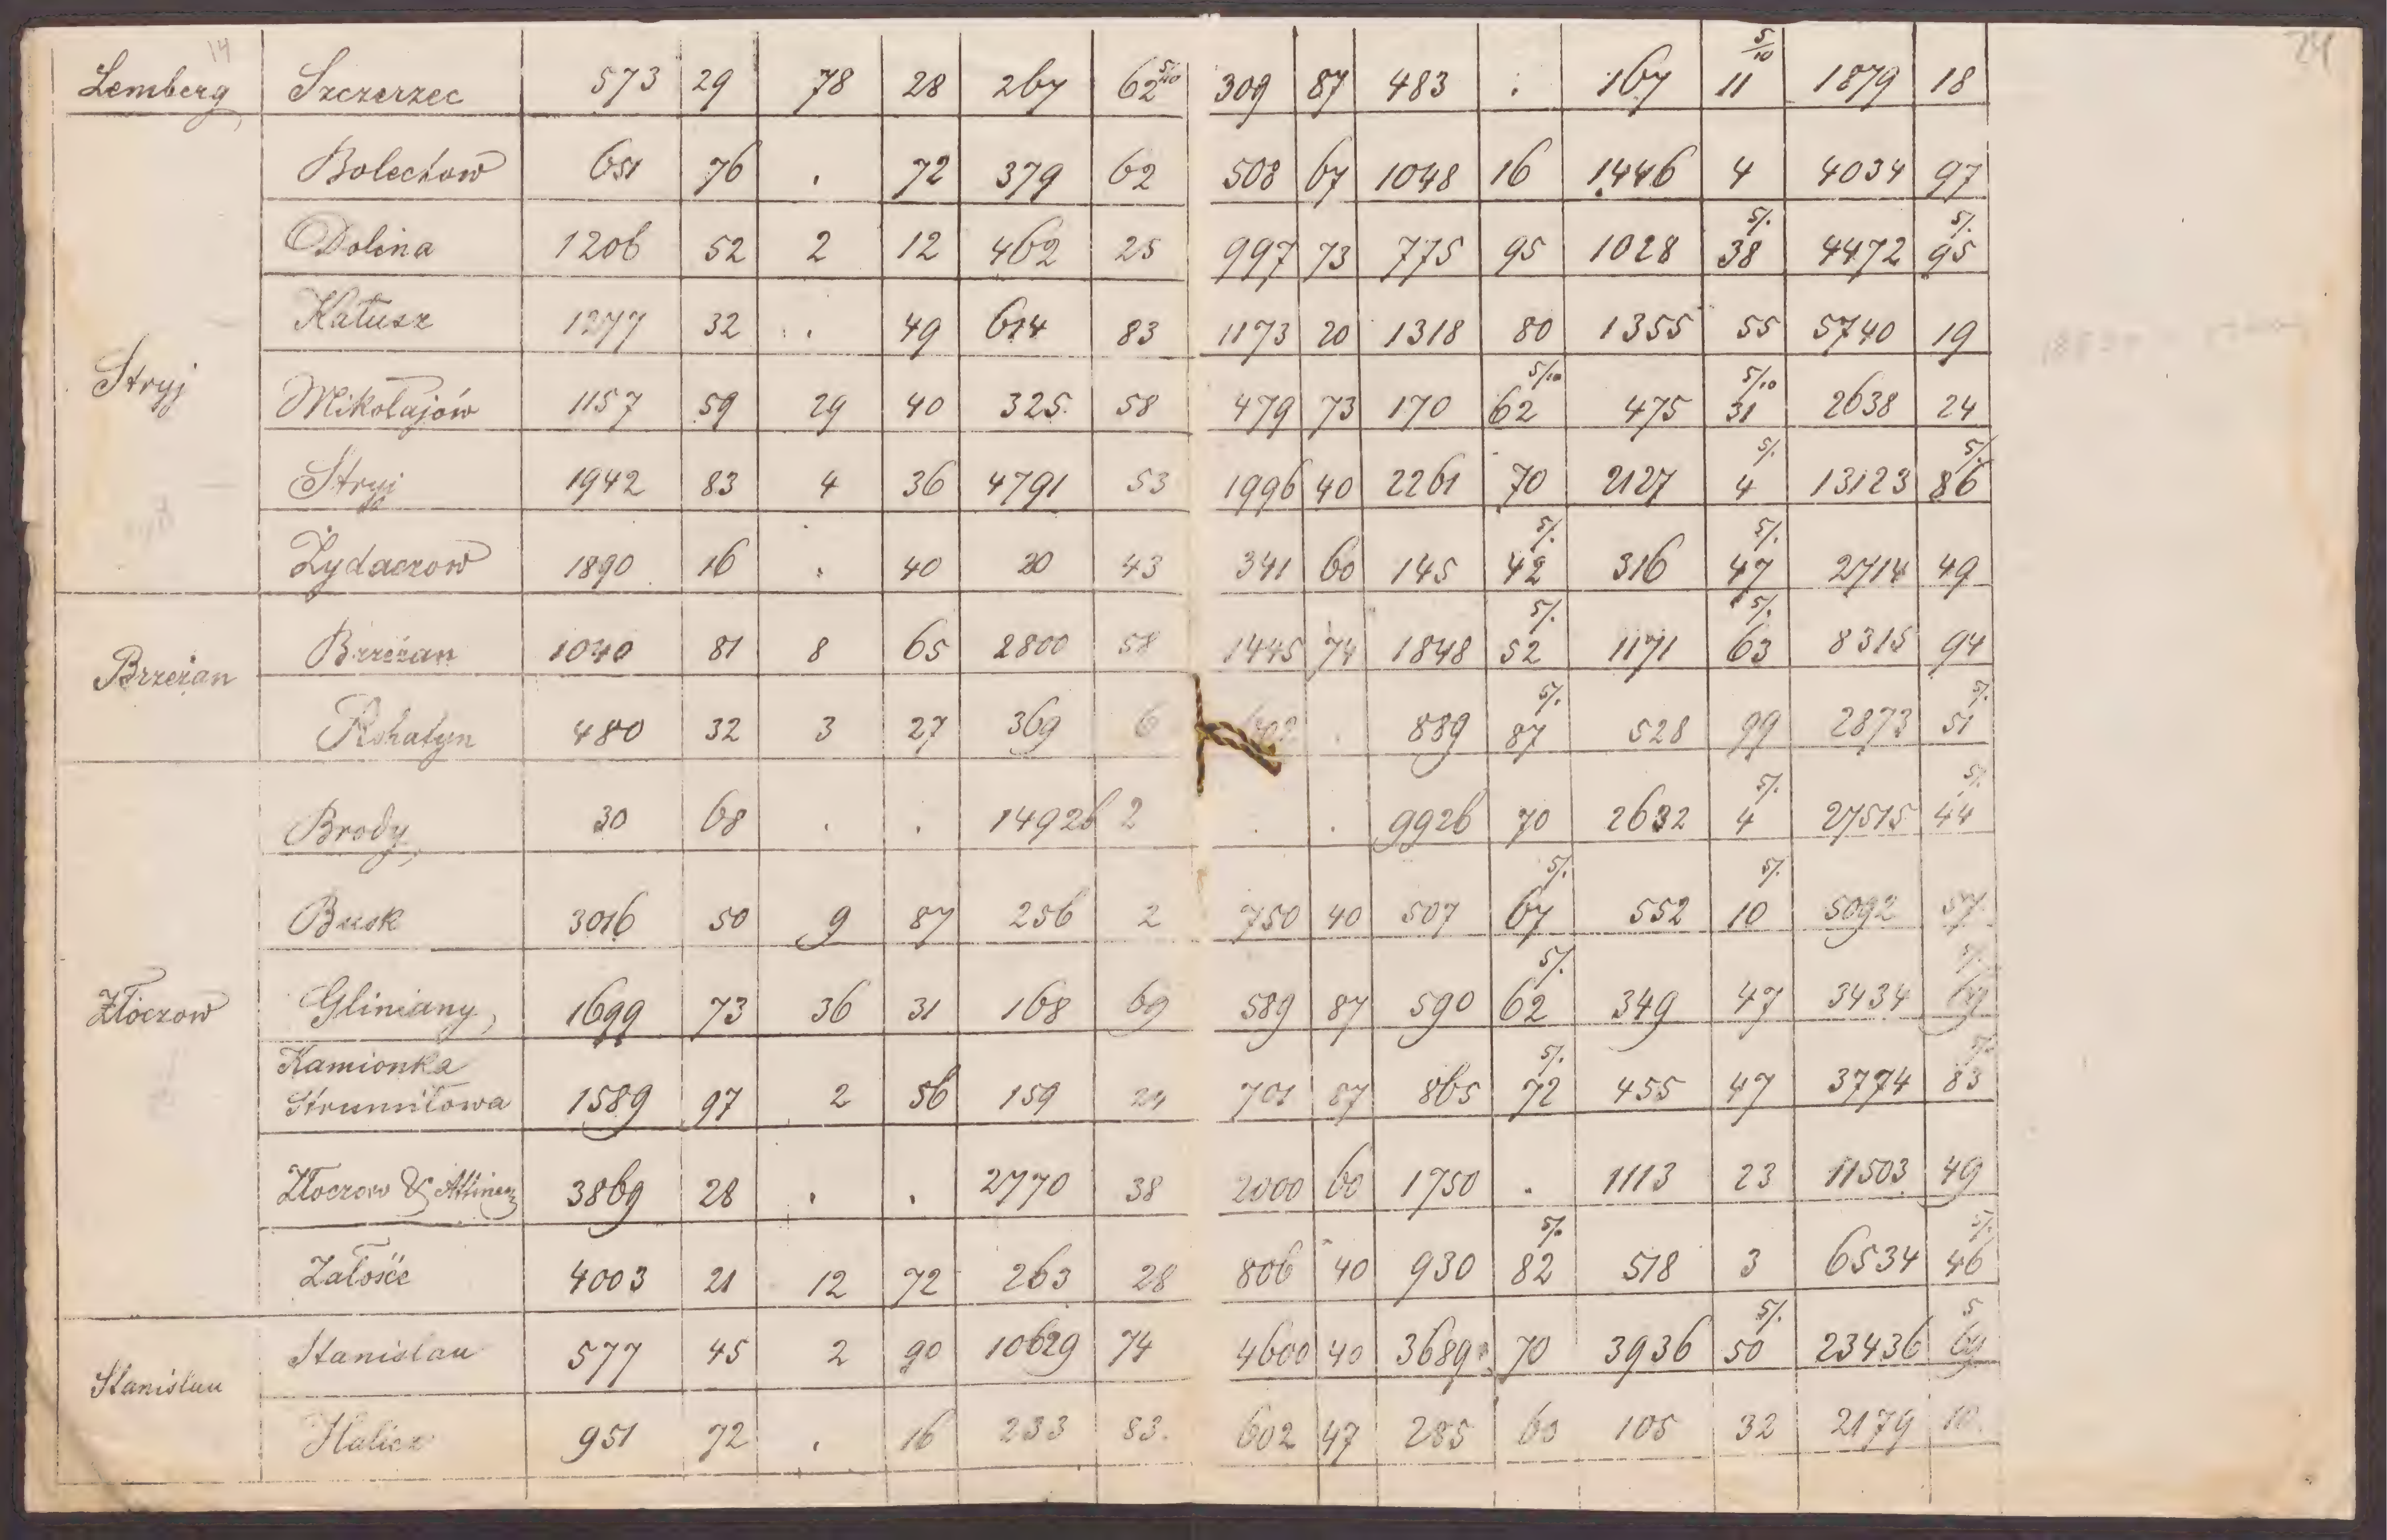 14 24
Lemberg Szczerzec 573 29 78 28 267 62 5/10 309 87 483 . 167 11 5/10 1879 18
Bolechow 651 76 . 72 379 62 508 67 1048 16 1446 4 4034 97
Dolina 1206 52 2 12 462 25 997 73 775 95 1028 38 5/. 4472 95 5/.
Kałusz 1277 32 . 49 614 83 1173 20 1318 80 1355 55 5740 19
Stryj Mikołajów 1157 59 29 40 325 58 479 73 170 62 5/10 475 31 5/10 2638 24
Stryj 1942 83 4 36 4791 53 1996 40 2261 70 2127 4 5/. 13123 86 5/.
Żydaczow 1890 16 . 40 20 43 341 60 145 42 5/. 316 47 5/. 2714 49
Brzeżan Brzeżan 1040 81 8 65 2800 58 1445 74 1848 52 5/. 1171 63 5/. 8315 94
Rohatyn 480 32 3 27 369 6 602 . 889 87 5/. 528 99 2873 51 5/.
Brody 30 68 . . 14926 2 . . 9926 70 2632 4 5/. 27515 44 5/.
Busk 3016 50 9 87 256 2 750 40 507 67 5/. 552 10 5/. 5092 57
Złoczow Gliniany 1699 73 36 31 168 69 589 87 590 62 5/. 349 47 3434 69 5/.
Kamionka
Strumiłowa 1589 97 2 56 159 24 701 87 865 72 5/. 455 47 3774 83 5/.
Złoczow & Attinenz 3869 28 . . 2770 38 2000 60 1750 . 1113 23 11503 49
Załośce 4003 21 12 72 263 28 806 40 930 82 5/. 518 3 6534 46 5/.
Stanislau Stanislau 577 45 2 90 10629 74 4600 40 3689 70 3936 50 5/. 23436 69 5
Halicz 951 72 . 16 233 83 602 47 285 60 105 32 2179 10